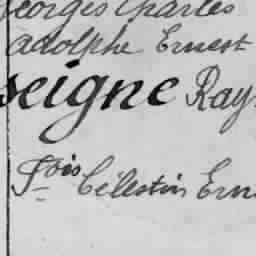 Georges Charles
Adolphe Ernest
seigne Ray
Fois Célestin Ern